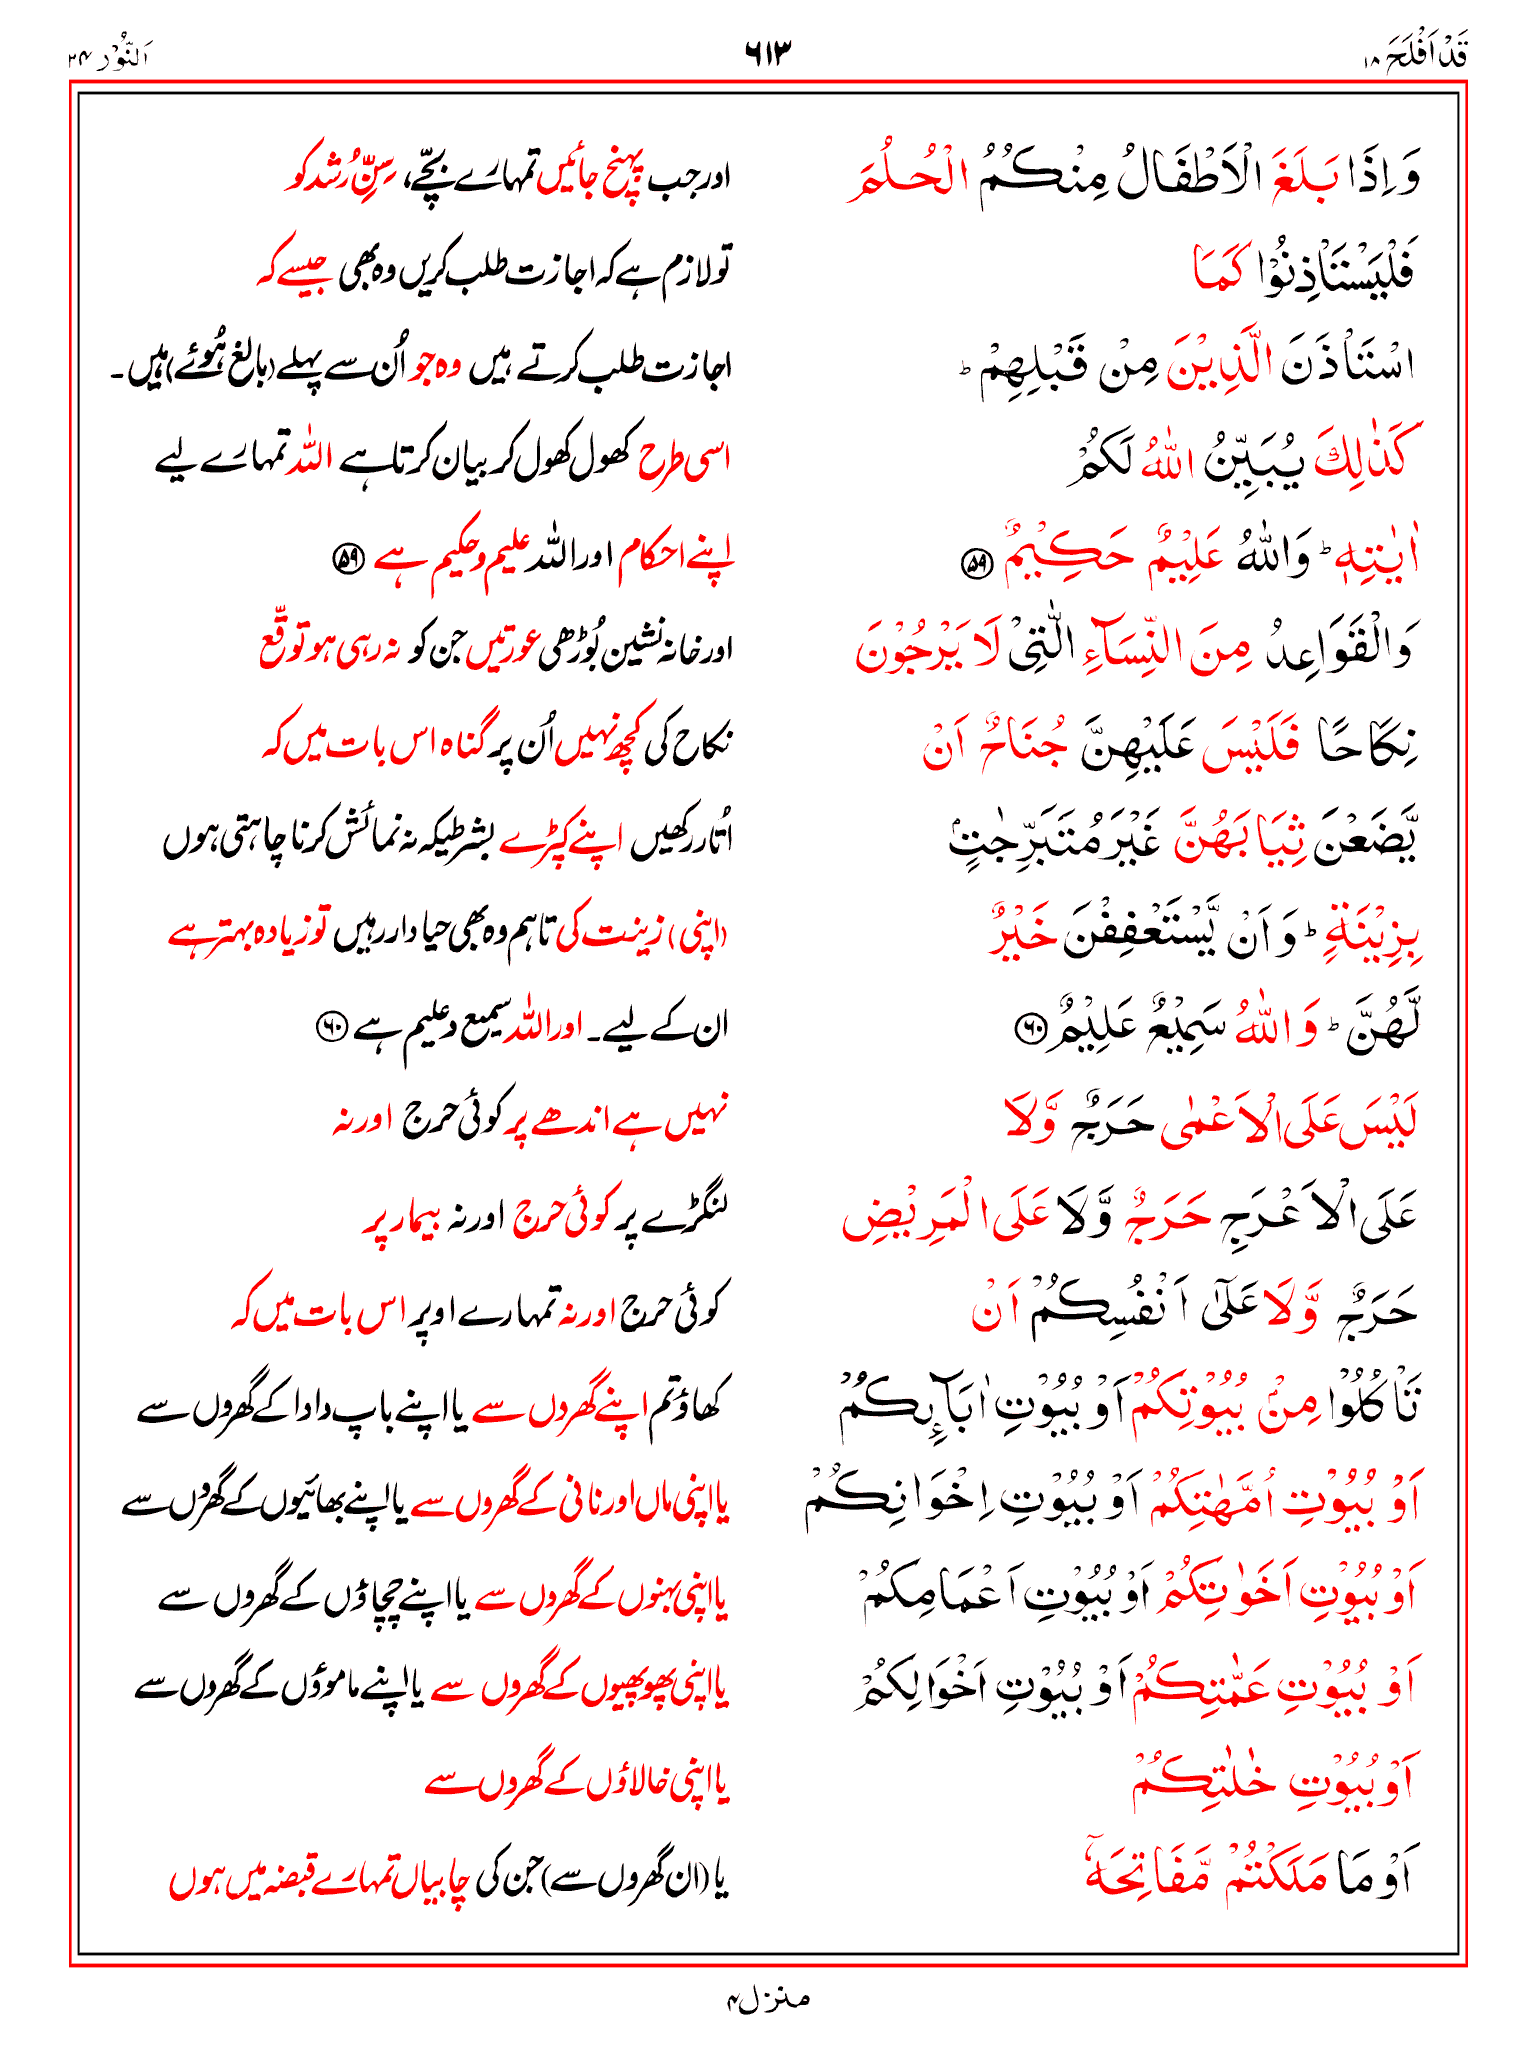 قَدْ اَفْلَحَ ۱۸ ۶۱۳ اَلنُّوْر ۲۴
وَاِذَا بَلَغَ الْاَطْفَالُ مِنْكُمُ الْحُلُمَ اور جب پہنچ جائیں تمہارے بچّے، سِنِّ رُشد کو
فَلْيَسْتَاْذِنُوْا كَمَا تو لازم ہے کہ اجازت طلب کریں وہ بھی جیسے کہ
اسْتَاْذَنَ الَّذِيْنَ مِنْ قَبْلِهِمْ ؕ اجازت طلب کرتے ہیں وہ جو اُن سے پہلے (بالغ ہُوئے) ہیں۔
كَذٰلِكَ يُبَيِّنُ اللّٰهُ لَكُمْ اسی طرح کھول کھول کر بیان کرتا ہے اللہ تمہارے لیے
اٰيٰتِهٖ ؕ وَاللّٰهُ عَلِيْمٌ حَكِيْمٌ ۵۹ اپنے احکام اور اللہ علیم و حکیم ہے ۵۹
وَالْقَوَاعِدُ مِنَ النِّسَآءِ الّٰتِيْ لَا يَرْجُوْنَ اور خانہ نشین بُوڑھی عورتیں جن کو نہ رہی ہو توقّع
نِكَاحًا فَلَيْسَ عَلَيْهِنَّ جُنَاحٌ اَنْ نکاح کی کچھ نہیں اُن پر گناہ اس بات میں کہ
يَّضَعْنَ ثِيَابَهُنَّ غَيْرَ مُتَبَرِّجٰتٍۭ اُتار رکھیں اپنے کپڑے بشرطیکہ نہ نمائش کرنا چاہتی ہوں
بِزِيْنَةٍ ؕ وَاَنْ يَّسْتَعْفِفْنَ خَيْرٌ (اپنی) زینت کی تاہم وہ بھی حیا دار رہیں تو زیادہ بہتر ہے
لَّهُنَّ ؕ وَاللّٰهُ سَمِيْعٌ عَلِيْمٌ ۶۰ ان کے لیے۔ اور اللہ سمیع و علیم ہے ۶۰
لَيْسَ عَلَى الْاَعْمٰى حَرَجٌ وَّلَا نہیں ہے اندھے پر کوئی حرج اور نہ
عَلَى الْاَعْرَجِ حَرَجٌ وَّلَا عَلَى الْمَرِيْضِ لنگڑے پر کوئی حرج اور نہ بیمار پر
حَرَجٌ وَّلَا عَلٰٓى اَنْفُسِكُمْ اَنْ کوئی حرج اور نہ تمہارے اوپر اس بات میں کہ
تَاْكُلُوْا مِنْۢ بُيُوْتِكُمْ اَوْ بُيُوْتِ اٰبَآىِٕكُمْ کھاؤ تم اپنے گھروں سے یا اپنے باپ دادا کے گھروں سے
اَوْ بُيُوْتِ اُمَّهٰتِكُمْ اَوْ بُيُوْتِ اِخْوَانِكُمْ یا اپنی ماں اور نانی کے گھروں سے یا اپنے بھائیوں کے گھروں سے
اَوْ بُيُوْتِ اَخَوٰتِكُمْ اَوْ بُيُوْتِ اَعْمَامِكُمْ یا اپنی بہنوں کے گھروں سے یا اپنے چچاؤں کے گھروں سے
اَوْ بُيُوْتِ عَمّٰتِكُمْ اَوْ بُيُوْتِ اَخْوَالِكُمْ یا اپنی پھوپھیوں کے گھروں سے یا اپنے ماموؤں کے گھروں سے
اَوْ بُيُوْتِ خٰلٰتِكُمْ یا اپنی خالاؤں کے گھروں سے
اَوْ مَا مَلَكْتُمْ مَّفَاتِحَهٗٓ یا (ان گھروں سے) جن کی چابیاں تمہارے قبضہ میں ہوں
منزل ۴